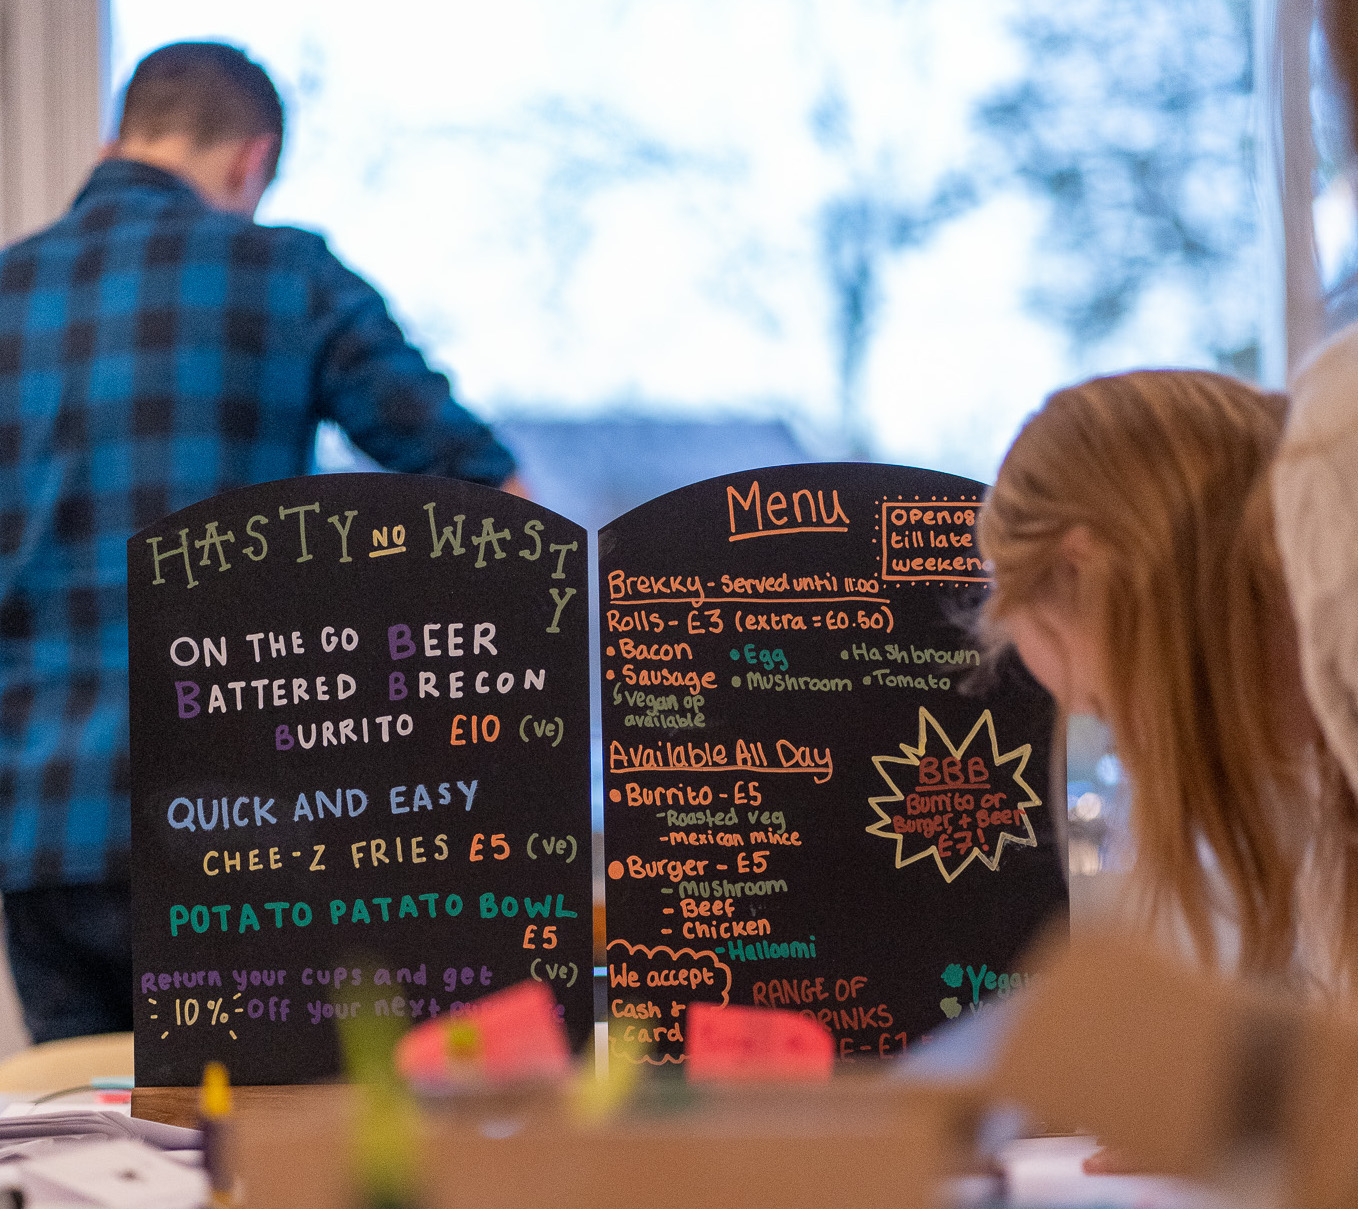 HASTY NO WASTY
ON THE GO BEER
BATTERED BRECON
BURRITO £10 (ve)
QUICK AND EASY
CHEE-Z FRIES £5 (ve)
POTATO PATATO BOWL
£5
(ve)
Return your cups and get
10% off your next
Menu
Open 08
till late
weekend
Brekky - Served until 11:00
Rolls - £3 (extra = £0.50)
• Bacon • Egg • Hashbrown
• Sausage • Mushroom • Tomato
Vegan op
available
Available All Day
• Burrito - £5
- Roasted veg
- Mexican mince
• Burger - £5
- Mushroom
- Beef
- Chicken
- Halloumi
BBB
Burrito or
Burger + Beer
£7!
We accept
Cash &
card
RANGE OF
DRINKS